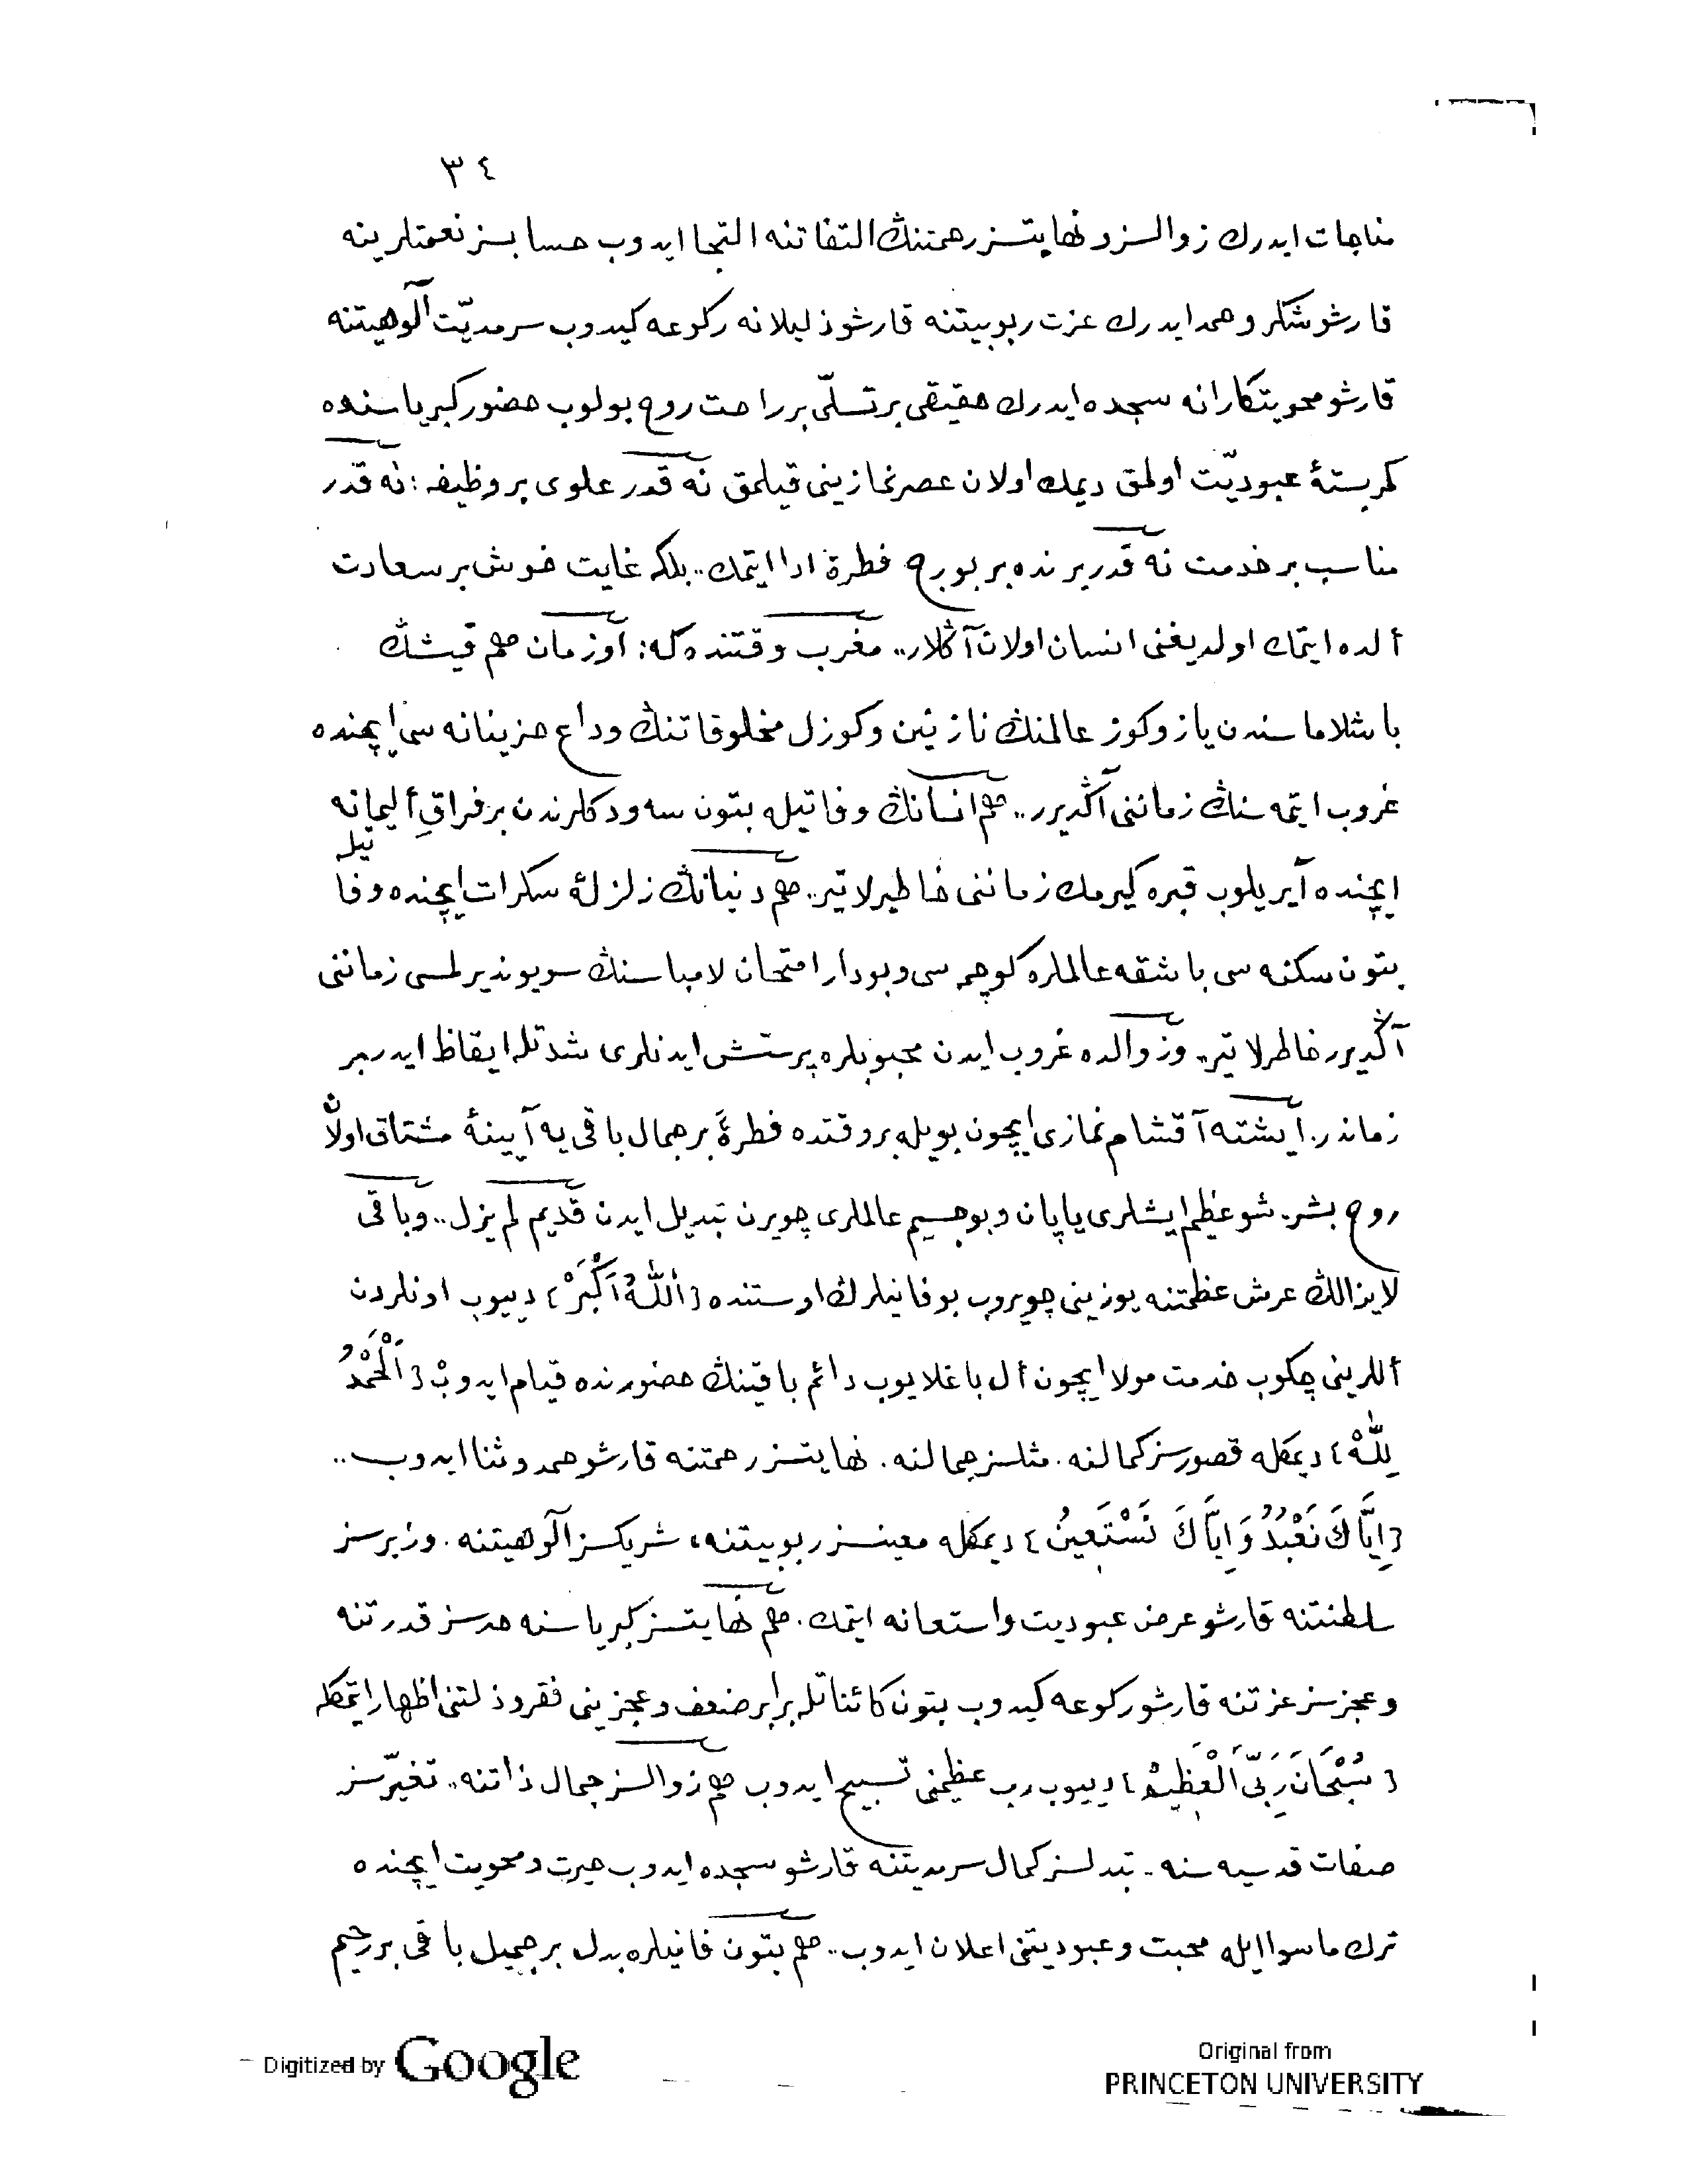 ٣٤
مناجات ايدرك زوالسز و نهايتسز رحمتنڭ التفاتنه التجا ايدوب حسابسز نعمتلرينه
قارشو شكر و حمد ايدرك عزت ربوبيتنه قارشو ذليلانه ركوعه كيدوب سرمديّت آلوهيتنه
قارشو محويتكارانه سجده ايدرك حقيقى بر تسلّى بر راحت روح بولوب حضور كبرياسنده
كمربستۀ عبوديّت اولمق ديمك اولان عصر نمازينى قيلمق نه قدر علوى بر وظيفه؛ نه قدر
مناسب بر خدمت نه قدر يرنده بر بورج فطرة ادا ايتمك.. بلكه غايت خوش بر سعادت
ألده ايتمك اولديغنى انسان اولان آڭلار.. مغرب وقتنده كه: اوزمان هم قيشڭ
باشلاماسندن ياز و كوز عالمنڭ نازنين و كوزل مخلوقاتنڭ وداع حزينانه سى ايچنده
غروب ايتمه سنڭ زماننى آڭديرر.. هم انسانڭ وفاتيله بتون سه ودكلرندن بر فراقِ أليمانه
ايچنده آيريلوب قبره كيرمك زماننى خاطيرلاتير.. هم دنيانڭ زلزلۀ سكرات ايچنده وفاتيله
بتون سكنه سى باشقه عالملره كوچمسى و بو دار امتحان لامباسنڭ سويونديرلمسى زماننى
آڭديرر خاطرلاتير.. و زوالده غروب ايدن محبوبلره پرستش ايدنلرى شدتله ايقاظ ايدر بر
زماندر. آيشته آقشام نمازى ايچون بويله بر وقتده فطرةً بر جمال باقى يه آيينۀ مشتاق اولان
روح بشر. شو عظيم ايشلرى ياپان و بو جسيم عالملرى چويرن تبديل ايدن قديم لم يزل.. و باقى
لايزالڭ عرش عظمتنه يوزينى چويروب بو فانيلرڭ اوستنده {أَللّٰهُ اَكْبَرْ} دييوب اونلردن
أللرينى چكوب خدمت مولا ايچون أل باغلايوب دائم باقينڭ حضورنده قيام ايدوب {اَلْحَمْدُ
لِلّٰهْ} ديمكله قصورسز كمالنه. مثلسز جمالنه. نهايتسز رحمتنه قارشو حمد و ثنا ايدوب..
{اِيَّاكَ نَعْبُدُ وَ اِيَّاكَ نَسْتَعِينُ} ديمكله معينسز ربوبيتنه، شريكسز آلوهيتنه. وزيرسز
سلطنتنه قارشو عرض عبوديت و استعانه ايتمك. هم نهايتسز كبرياسنه حدسز قدرتنه
و عجزسز عزتنه قارشو ركوعه كيدوب بتون كائناتله برابر ضعف و عجزينى فقر و ذلتنى اظهار ايتمكله
{سُبْحَانَ رَبِّىَ الْعَظِيمْ} دييوب رب عظيمنى تسبيح ايدوب هم زوالسز جمال ذاتنه.. تغيّرسز
صفات قدسيه سنه. تبدلسز كمال سرمديتنه قارشو سجده ايدوب حيرت و محويت ايچنده
ترك ماسوا ايله محبت و عبوديتنى اعلان ايدوب.. هم بتون فانيلره بدل بر جميل باقى بر رحيم
Digitized by Google
Original from
PRINCETON UNIVERSITY